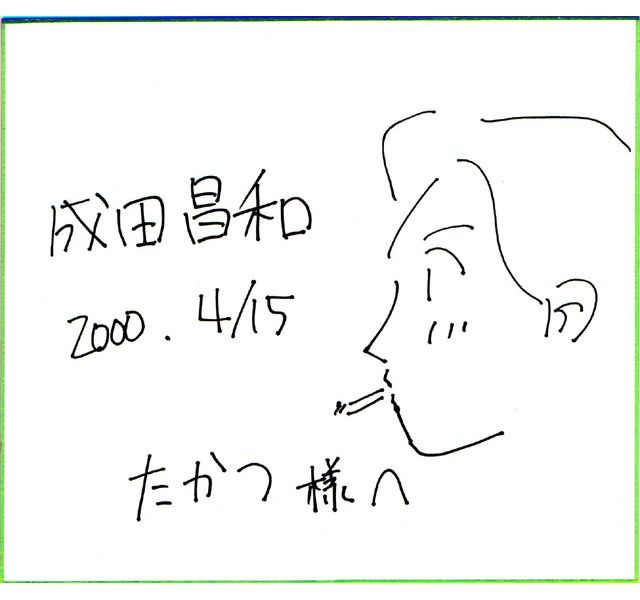 成田昌和
2000. 4/15
たかつ様へ